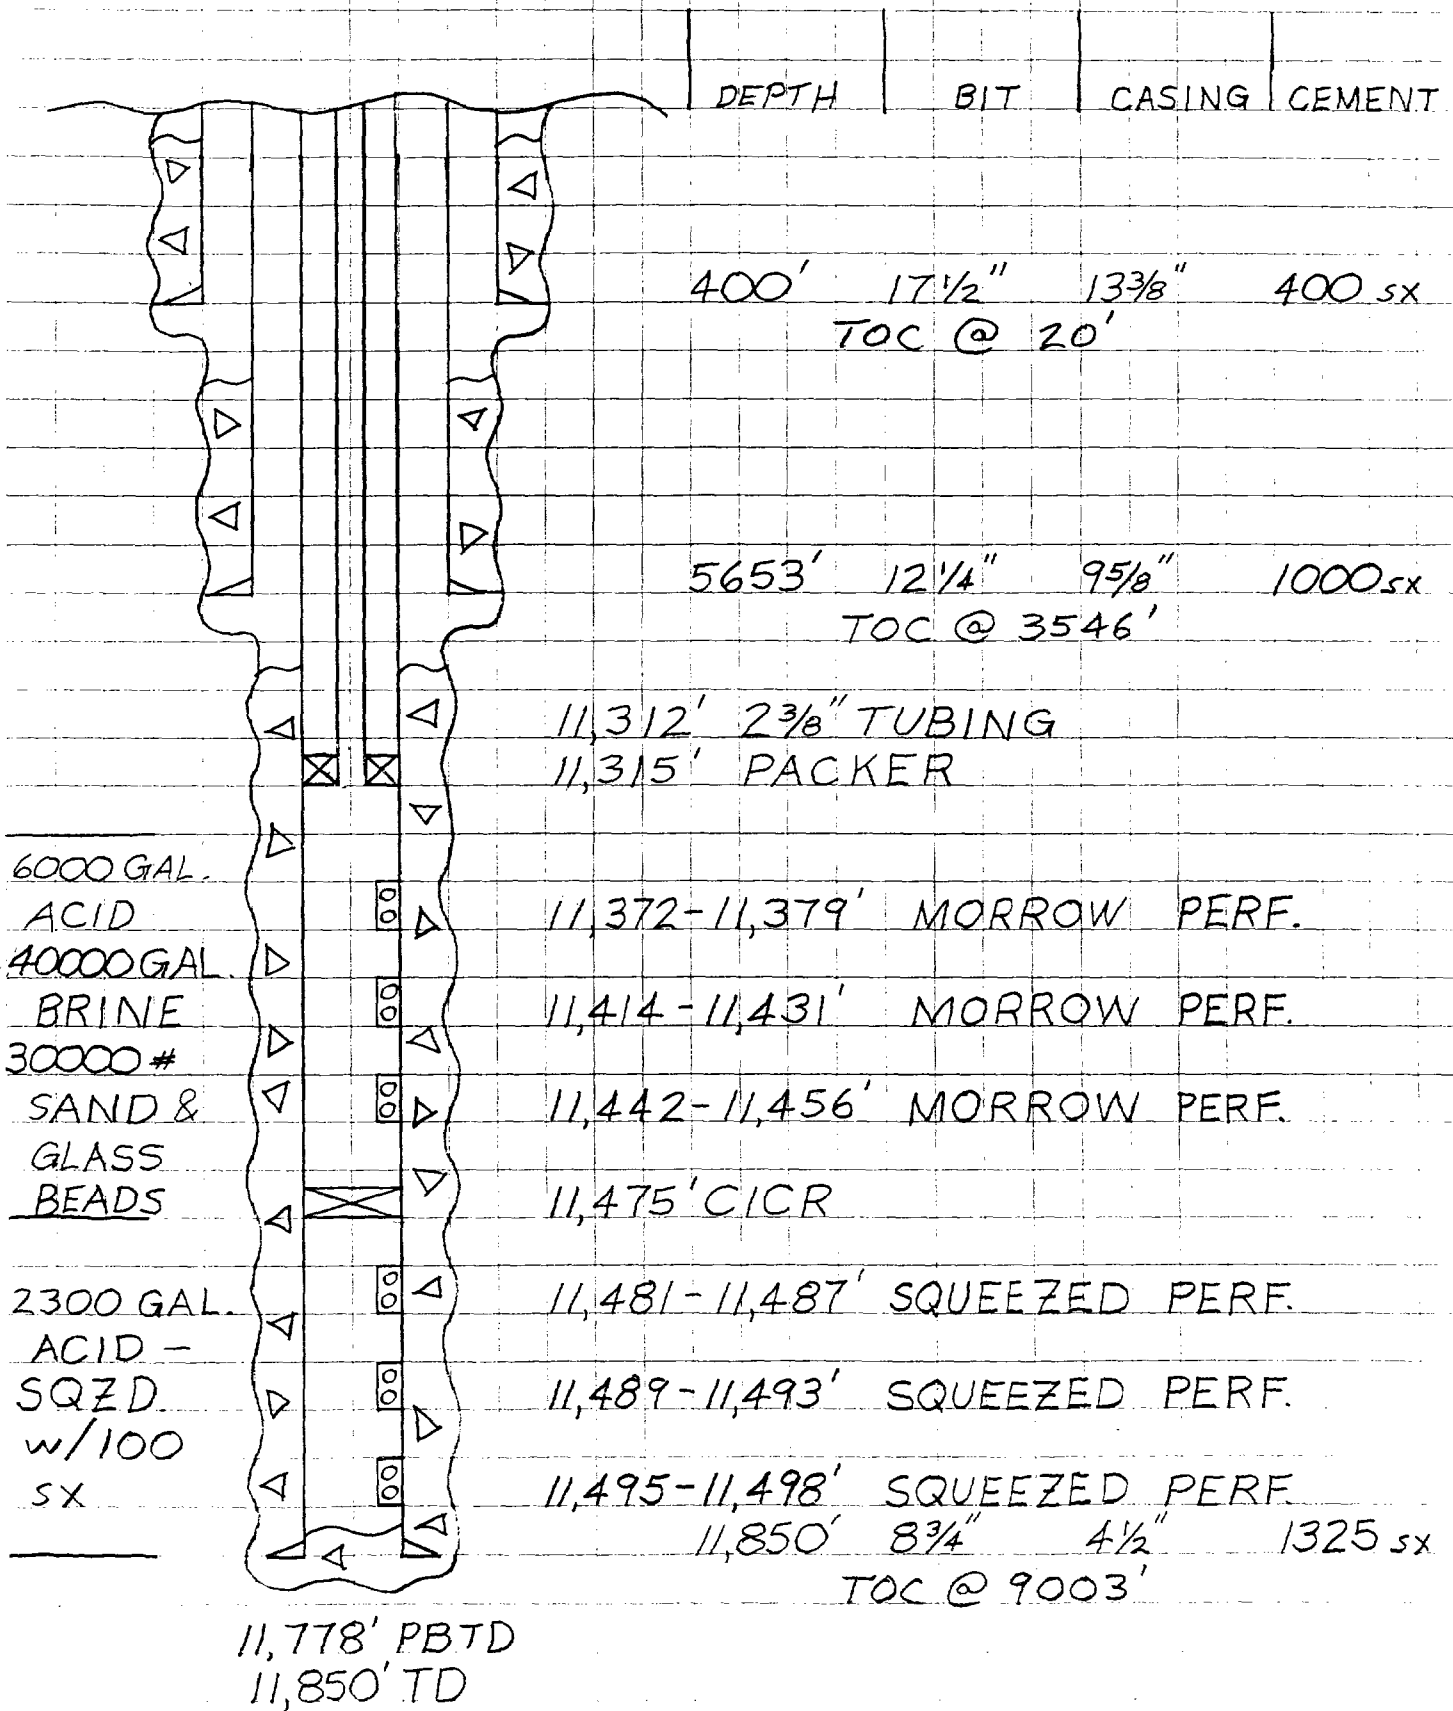 DEPTH BIT CASING CEMENT
400' 17 1/2" 13 3/8" 400 sx
TOC @ 20'
5653' 12 1/4" 9 5/8" 1000 sx
TOC @ 3546'
11,312' 2 3/8" TUBING
11,315' PACKER
6000 GAL.
ACID
40000 GAL.
BRINE
30000 #
SAND &
GLASS
BEADS
11,372-11,379' MORROW PERF.
11,414-11,431' MORROW PERF.
11,442-11,456' MORROW PERF.
11,475' CICR
2300 GAL.
ACID -
SQZD.
w/100
sx
11,481-11,487' SQUEEZED PERF.
11,489-11,493' SQUEEZED PERF.
11,495-11,498' SQUEEZED PERF.
11,850' 8 3/4" 4 1/2" 1325 sx
TOC @ 9003'
11,778' PBTD
11,850' TD